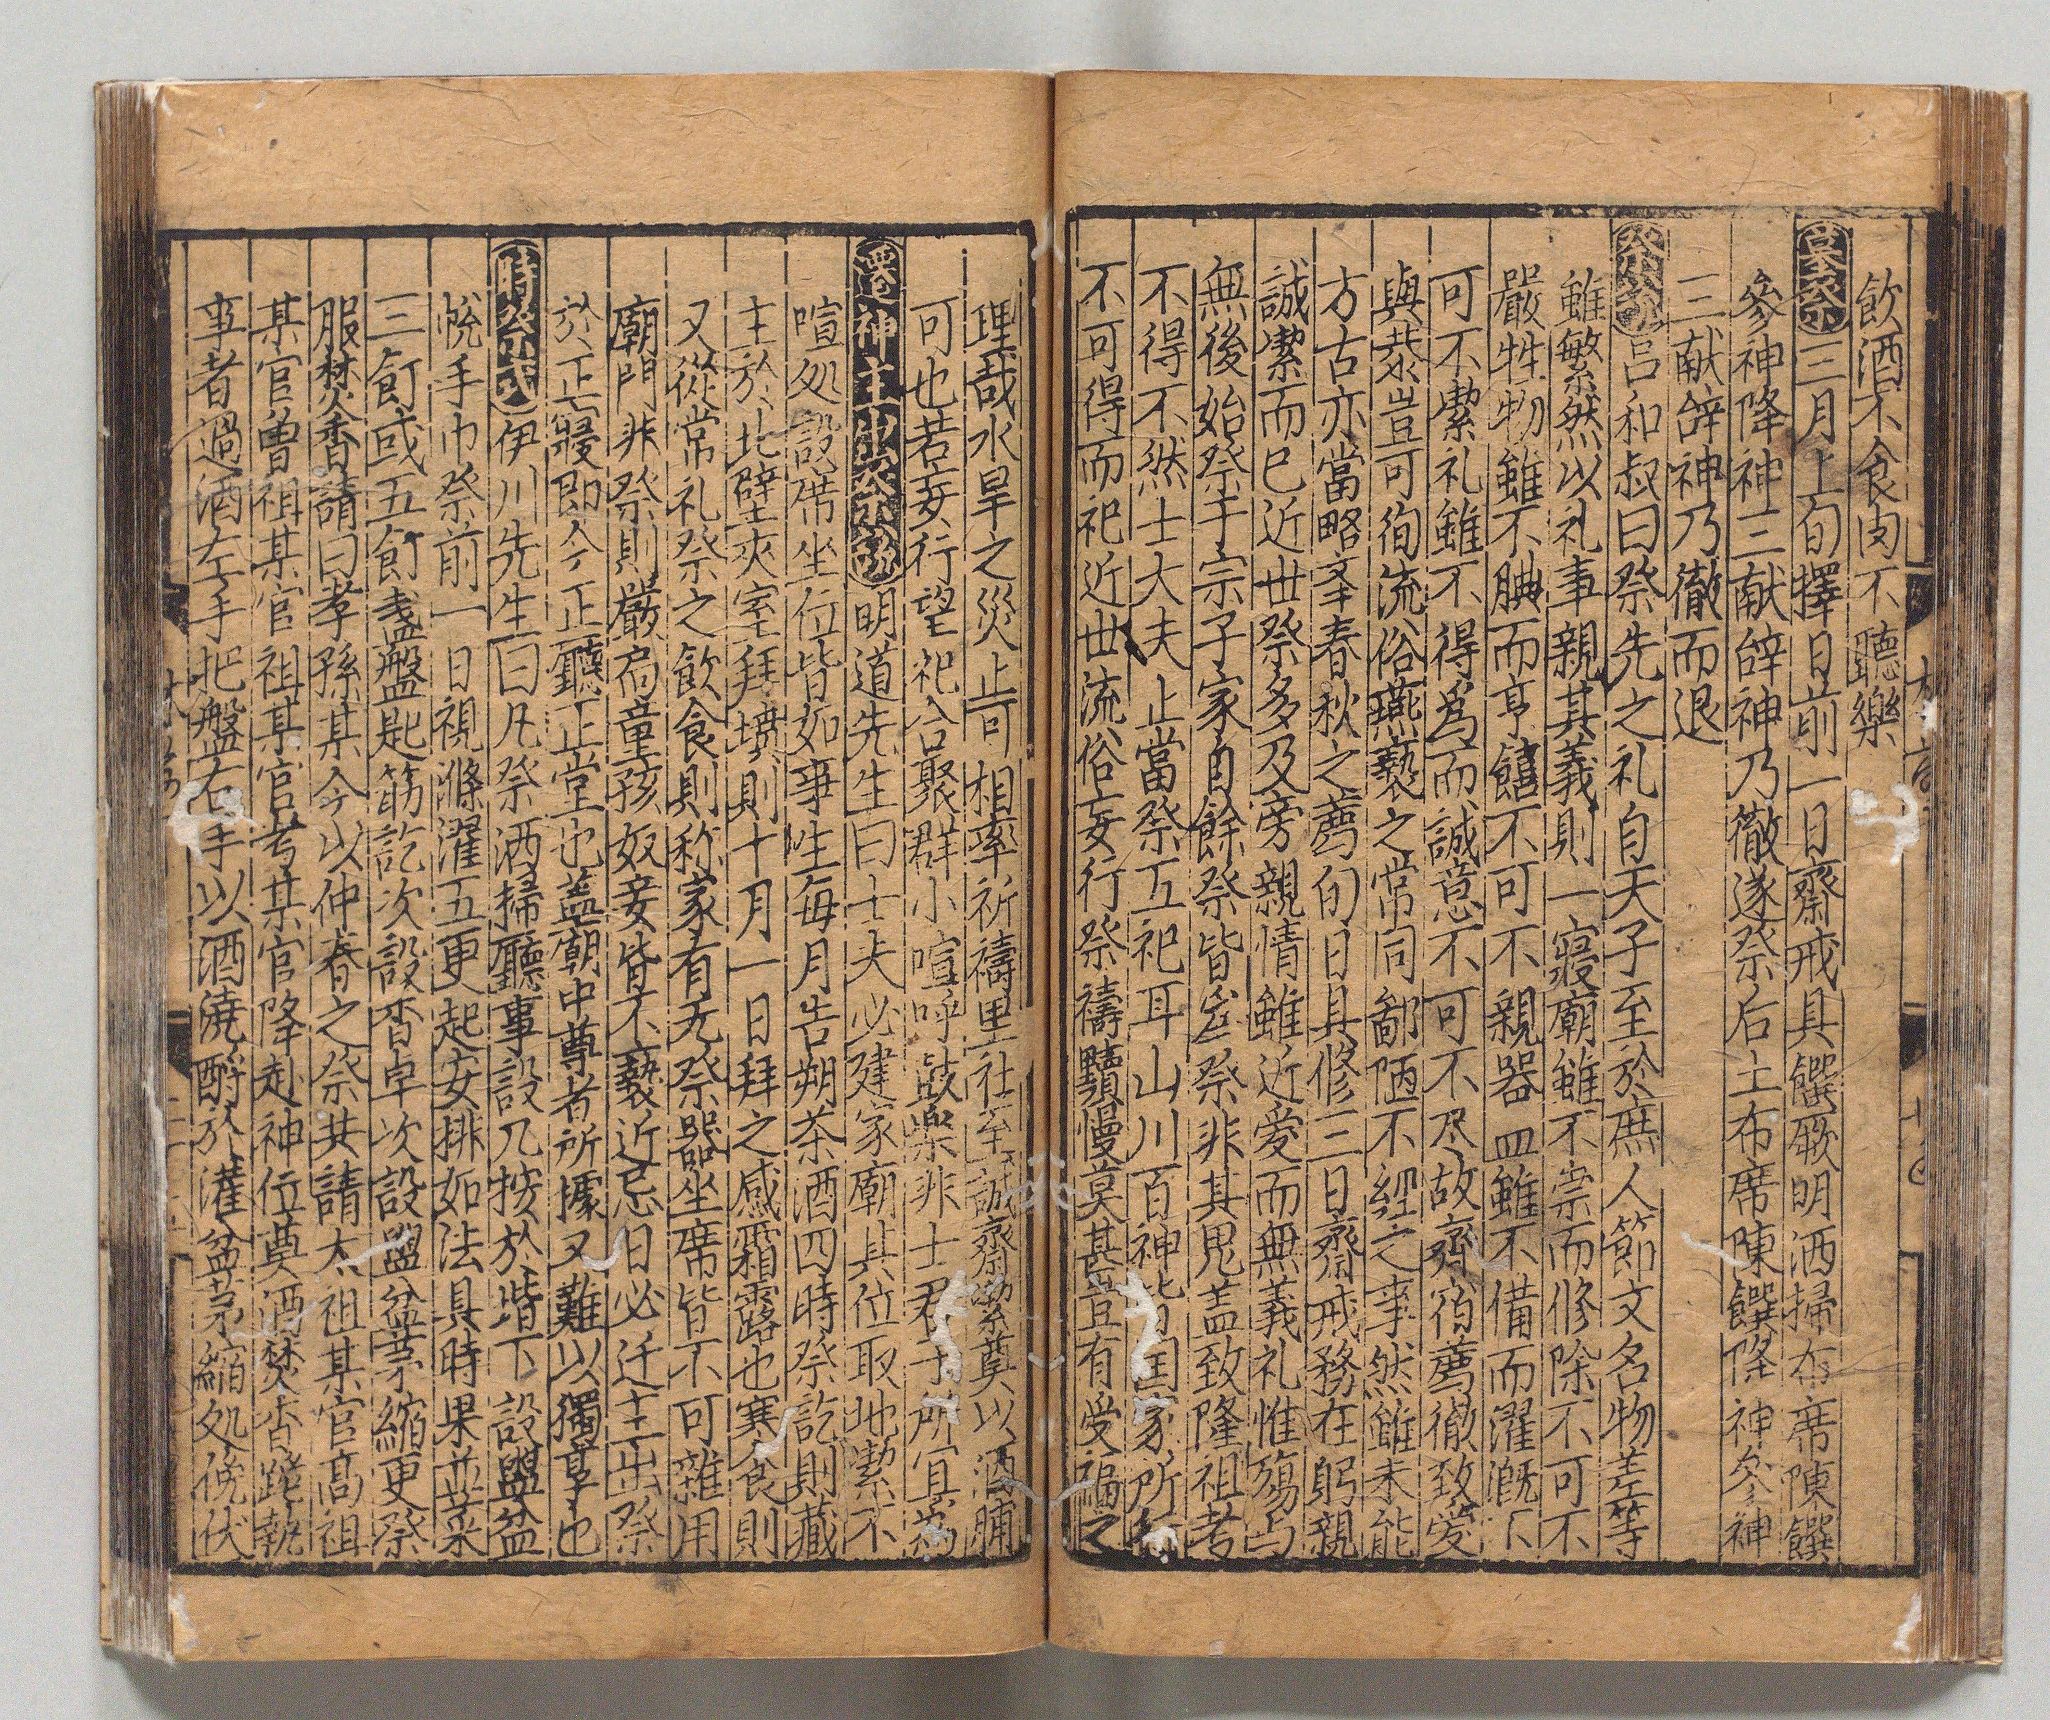 飲酒不食肉不聽樂
墓祭三月上旬擇日前一日齋戒具饌厥明洒掃布席陳饌
參神降神三献辞神乃徹遂祭后土布席陳饌降神參神
三献辞神乃徹而退
呂和叔曰祭先之礼自天子至於庶人節文名物差等
雖繁然以礼事親其義則一寢廟雖不崇而修除不可不
嚴牲物雖不腆而亨饎不可不親器皿雖不備而濯漑不
可不潔礼雖不得爲而誠意不可不尽故齋宿薦徹致愛
與恭豈可徇流俗燕褻之常同鄙陋不經之事然雖未能
方古亦當略奉春秋之薦旬日具修三日齋戒務在躬親
誠潔而已近世祭多及旁親情雖近愛而無義礼惟殤与
無後始祭于宗子家自餘祭皆祭非其鬼盖致隆祖考
不得不然士大夫止當祭五祀耳山川百神皆国家所
不可得而祀近世流俗妄行祭禱黷慢莫甚豈有受福之
理哉水旱之災止可相率祈禱里社至誠齋潔奠以酒脯
可也若妄行望祀合聚群小喧呼鼓樂非士君子所宜爲
遷神主出祭 明道先生曰士夫必建家廟其位取地潔不
喧処設席坐位皆如事生每月告朔茶酒四時祭訖則藏
主於北壁夾室拜墳則十月一日拜之感霜露也寒食則
又從常礼祭之飲食則称家有无祭器坐席皆不可雜用
廟門非祭則嚴扃童孩奴妾皆不褻近忌日必迁主出祭
於正寢即今正廳正堂也蓋廟中尊者所據又難以獨享也
時祭式伊川先生曰凡祭洒掃廳事設几按於堦下設盥盆
帨手巾祭前一日視滌濯五更起安排如法具時果並菜
三飣或五飣盞盤匙筯訖次設香卓次設盥盆茅縮更祭
服焚香請曰孝孫某今以仲春之祭共請太祖某官高祖
某官曾祖某官祖某官考某官降赴神位奠酒焚香跪執
事者過酒左手把盤右手以酒澆酹於灌盆茅縮処俛伏